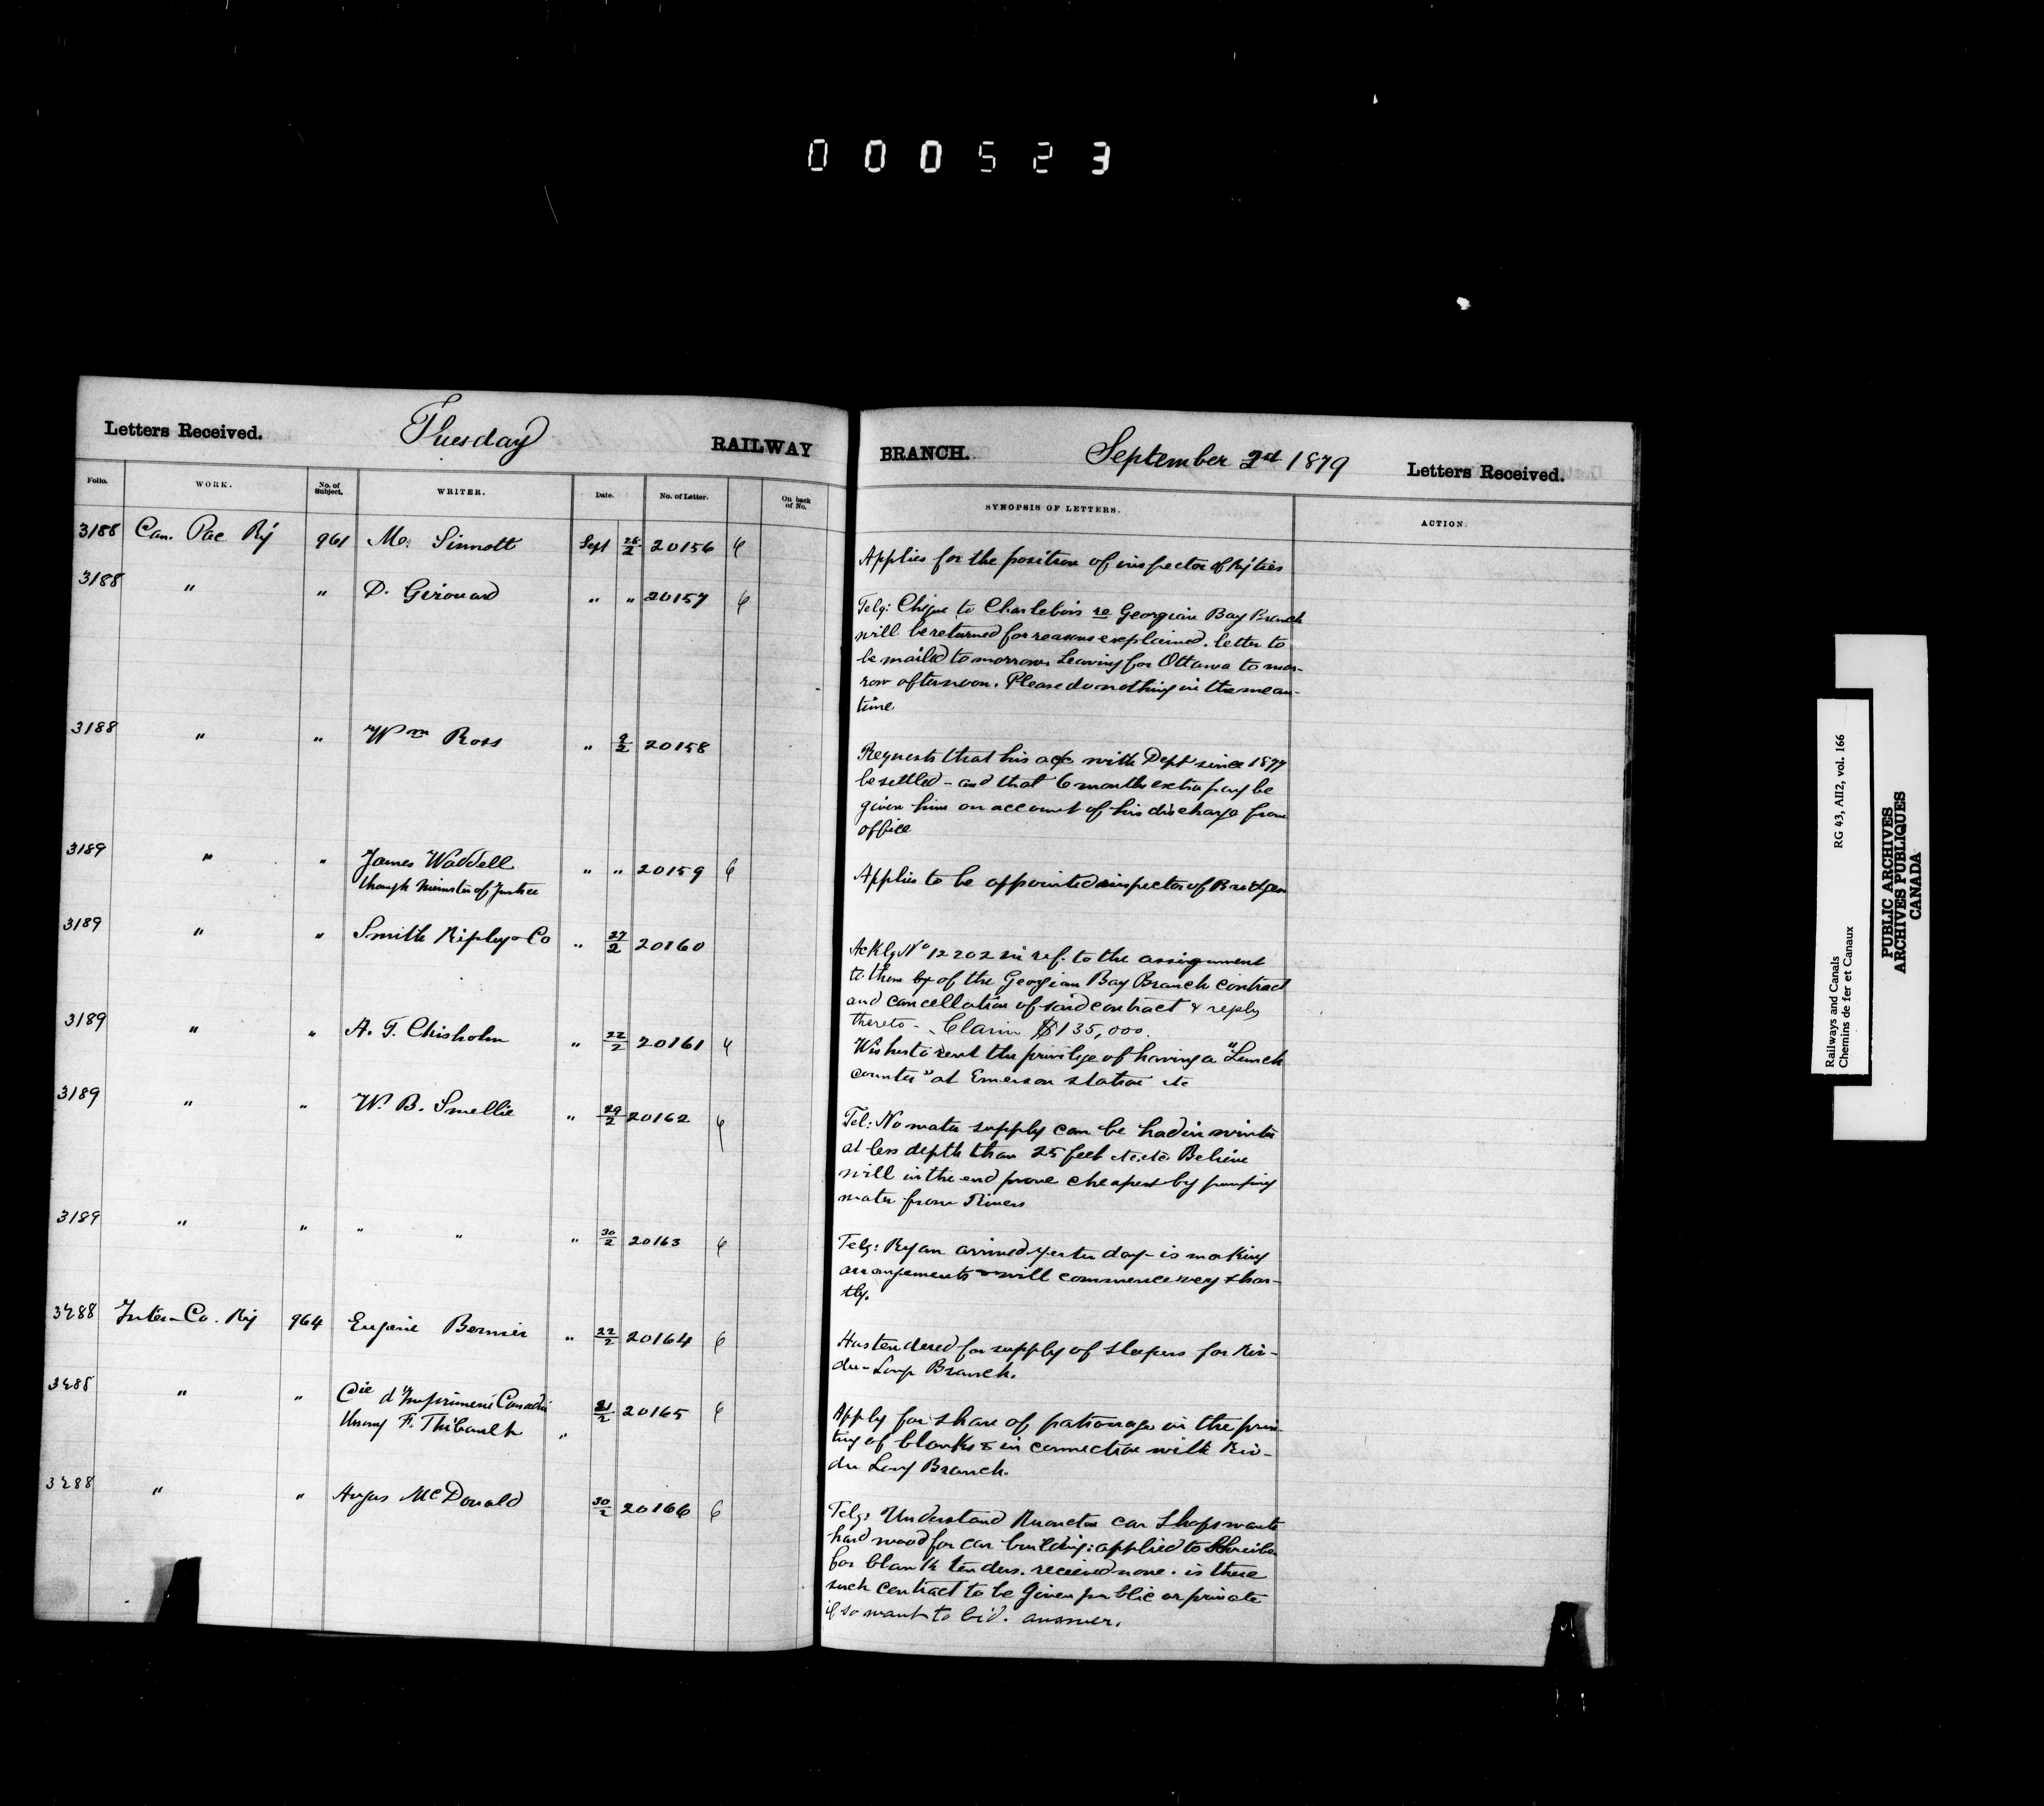 000523
Letters Received. Tuesday RAILWAY
BRANCH. September 2nd 1879 Letters Received.
Folio. WORK. No. of Subject. WRITER. Date. No. of Letter. On back of No.
SYNOPSIS OF LETTERS. ACTION.
3188 Can. Pac Ry 961 M. Sinnott Sept 26/2 20156
Applies for the position of inspector of Ry ties
3188 " " D. Girouard " " 20157
Telg: Cheque to Charlebois re Georgian Bay Branch
will be returned for reasons explained. letter to
be mailed tomorrow. Leaving for Ottawa to mor-
row afternoon. Please do nothing in the mean-
time
3188 " " Wm Ross " 2/2 20158
Requests that his a/c with Dept since 1877
be settled - and that 6 months extra pay be
given him on account of his discharge from
office
3189 " " James Waddell " " 20159
through Minister of Justice
Applies to be appointed inspector of Bridges
3189 " " Smith Ripley & Co " 27/2 20160
Ackly No 12202 in ref. to the assignment
to them by of the Georgian Bay Branch contract
and cancellation of said contract & reply
thereto - Claim $135,000.
3189 " " A. T. Chisholm " 22/2 20161
Wishes to rent the privilege of having a "Lunch
counter" at Emerson station etc
3189 " " W. B. Smellie " 29/2 20162
Tel: No water supply can be had in winter
at less depth than 25 feet etc. etc. Believe
will in the end prove cheapest by pumping
water from Rivers
3189 " " " " " 30/2 20163
Telg: Ryan arrived yesterday - is making
arrangements & will commence very shor-
tly.
3288 Inter-Co. Ry 964 Eugene Bernier " 22/2 20164
Has tendered for supply of sleepers for Riv-
du-Loup Branch.
3288 " " Cie d'Imprimerie Canadi
Unsuy F. Thibault " 21/2 20165
Apply for share of patronage in the prin-
ting of blanks & in connection with Riv-
du Loup Branch.
3288 " " Angus McDonald 30/2 20166
Telg: Understand Moncton car shops wants
hard wood for car building: applied to Schreiber
for blank tenders. received none. is there
such contract to be given public or private
if so want to bid. answer.
Railways and Canals RG 43, AII2, vol. 166
Chemins de fer et Canaux
PUBLIC ARCHIVES
ARCHIVES PUBLIQUES
CANADA